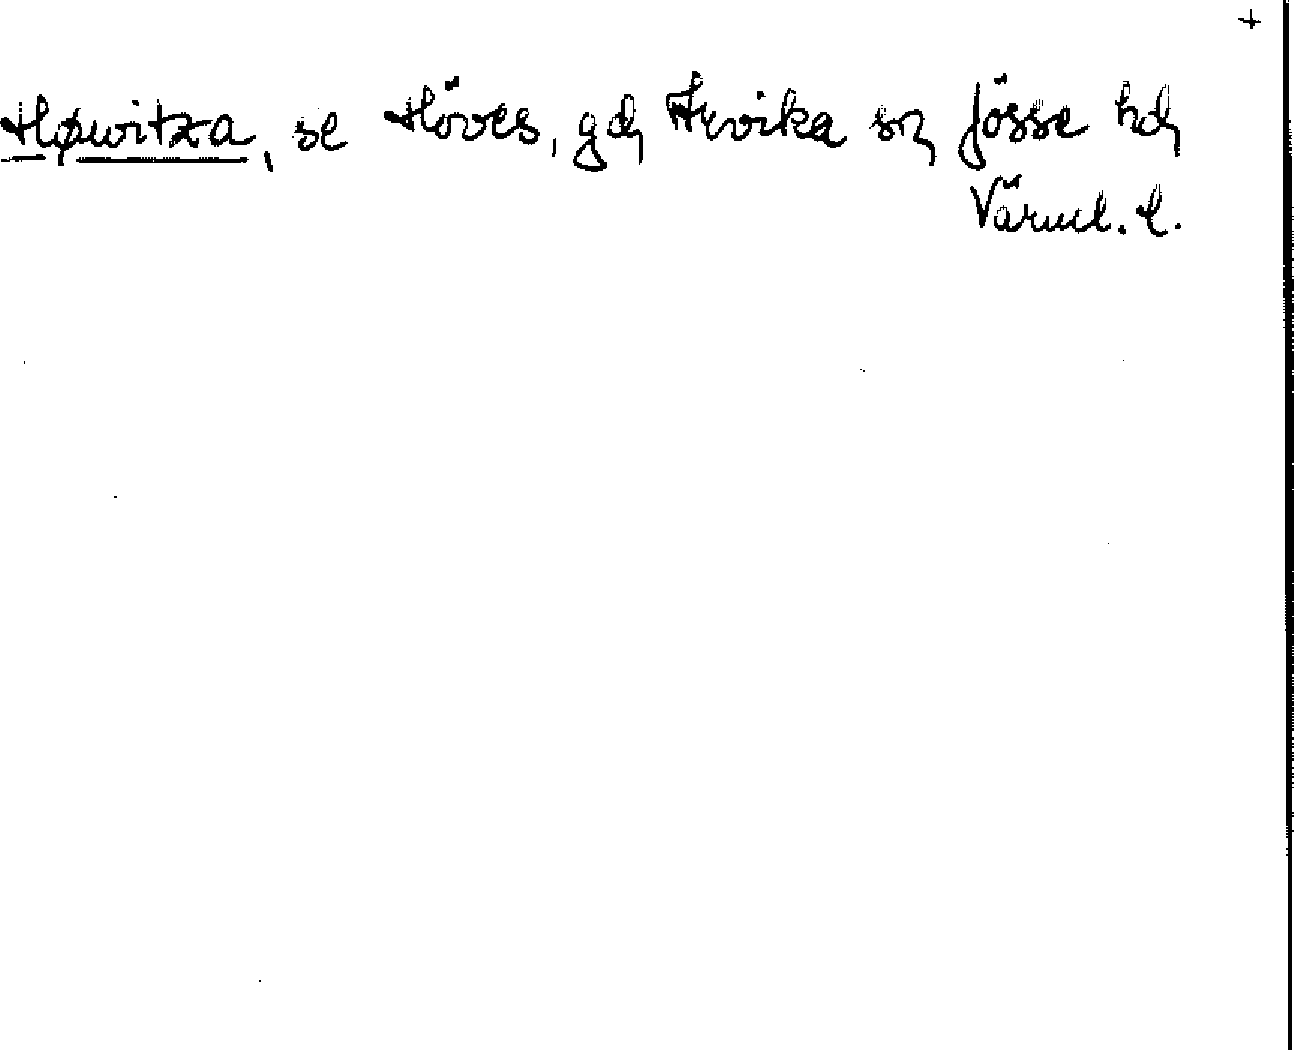 +
Høwitza, se Höves, gd, Arvika sn, Jösse hd,
Värml. l.